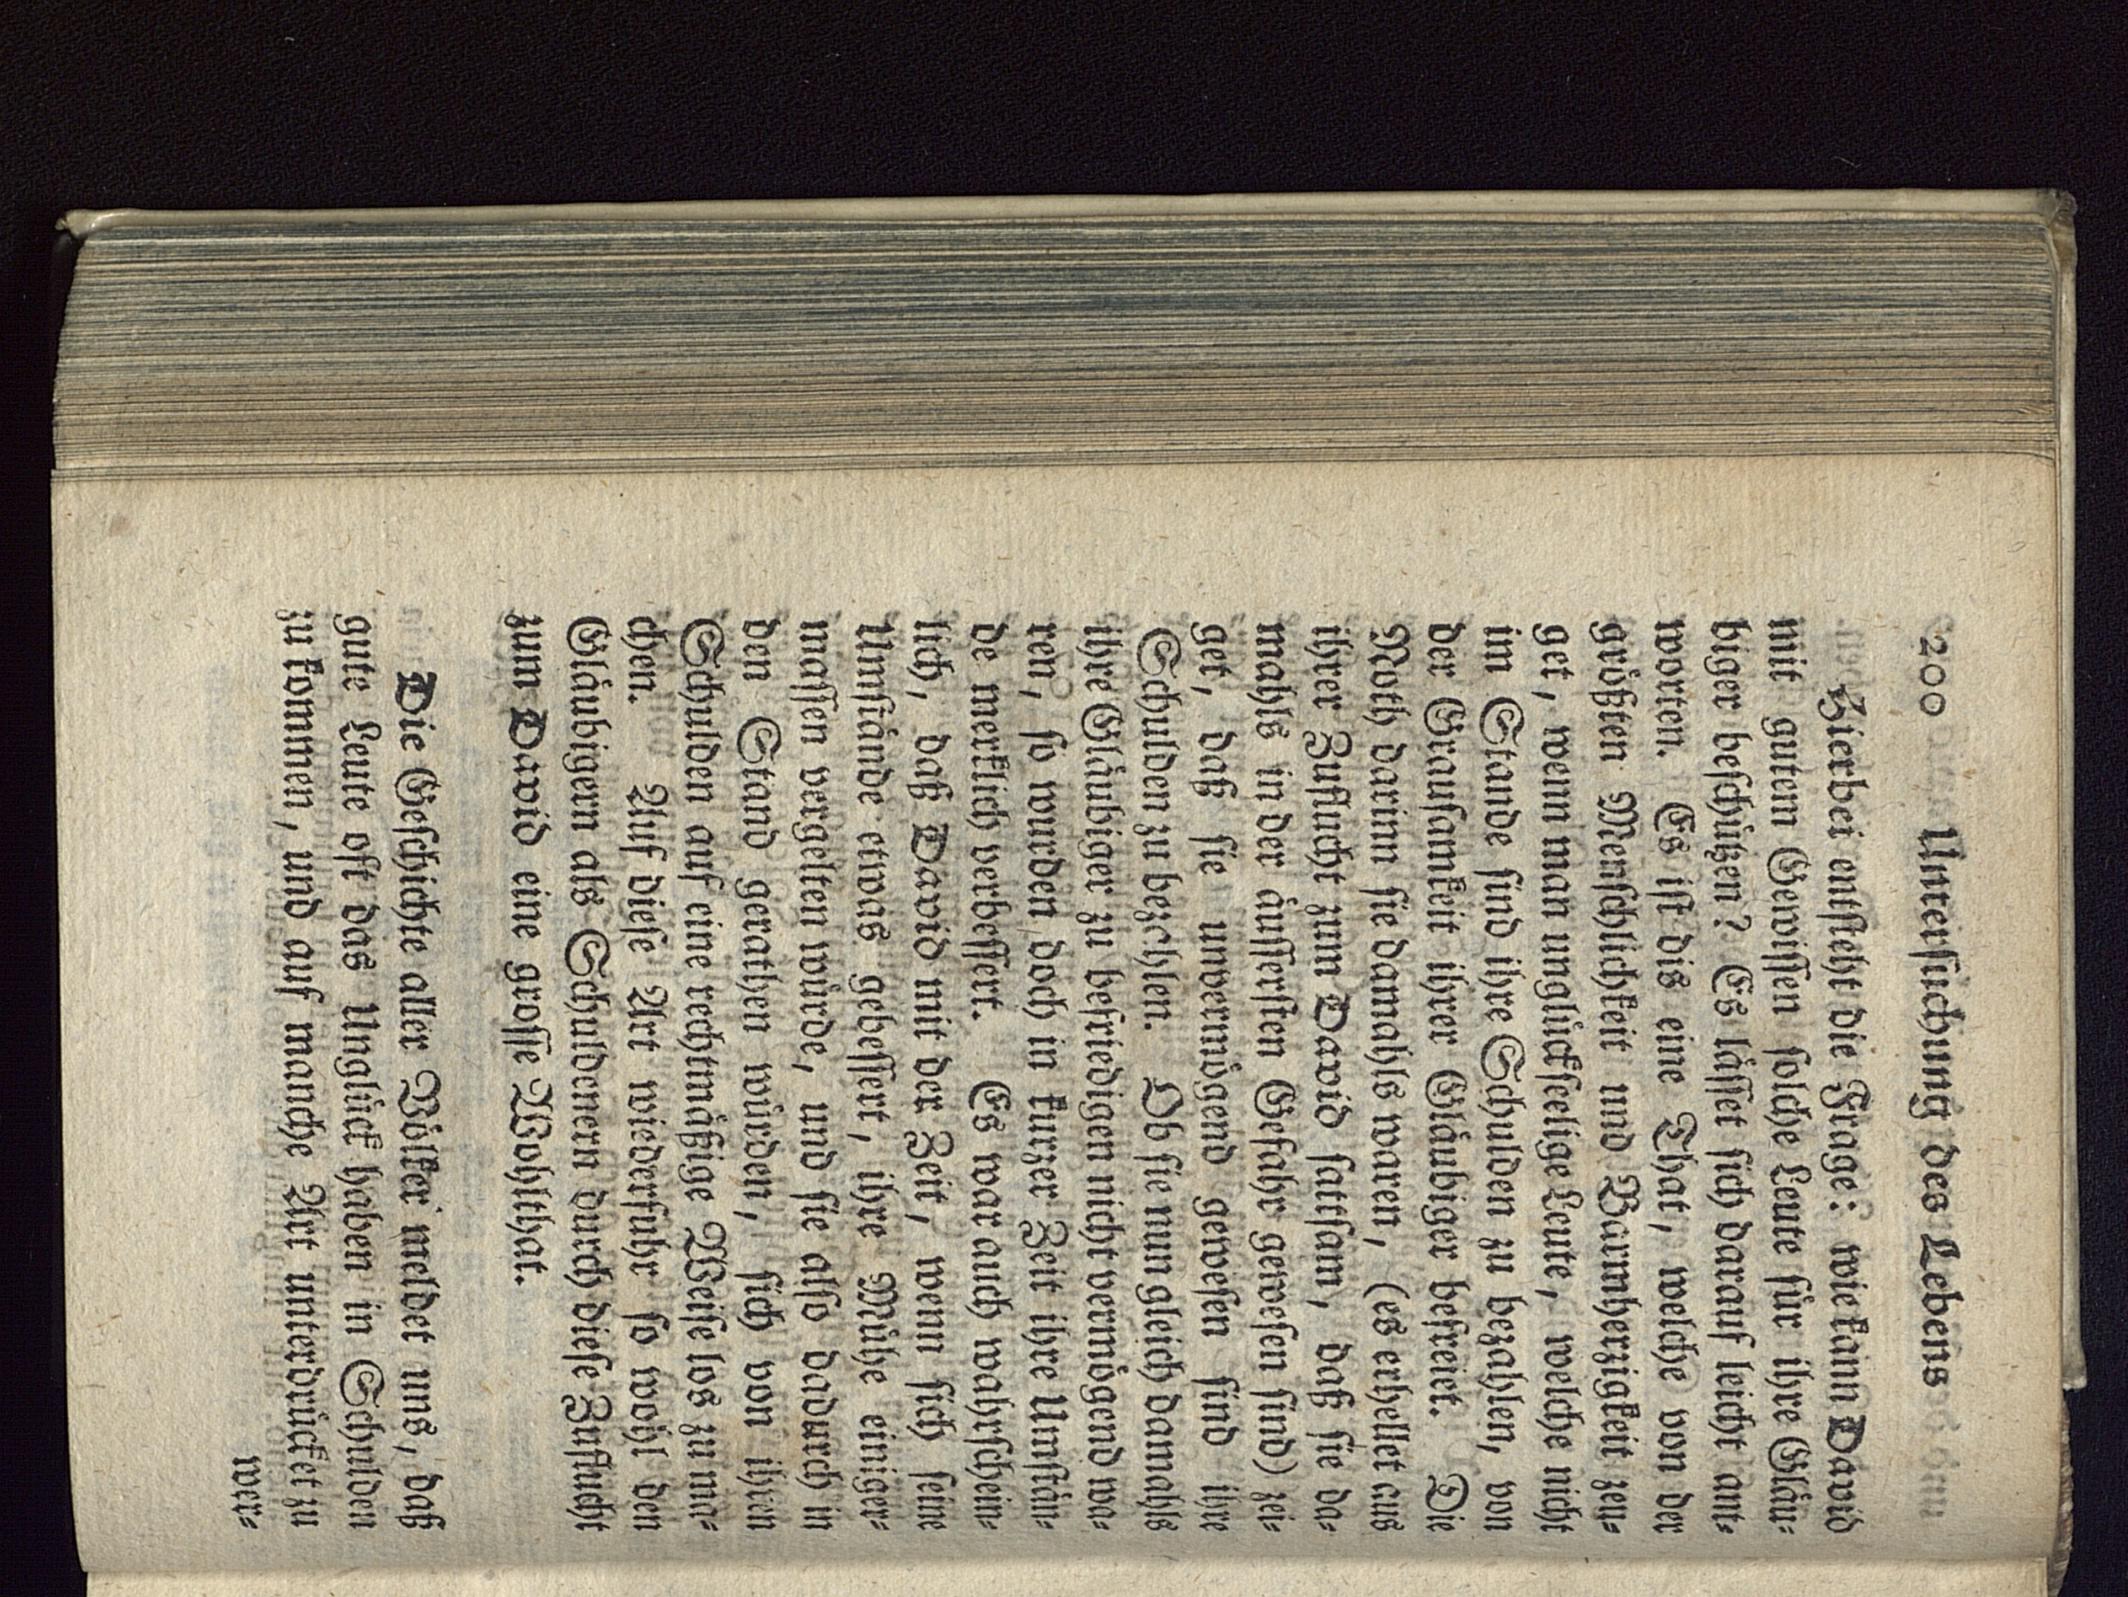 200 Untersuchung des Lebens
Hierbei entsteht die Frage: wie kann David
mit gutem Gewissen solche Leute für ihre Gläu-
biger beschützen? Es lässet sich darauf leicht ant-
worten. Es ist dis eine That, welche von der
größten Menschlichkeit und Barmherzigkeit zeu-
get, wenn man unglückseelige Leute, welche nicht
im Stande sind ihre Schulden zu bezahlen, von
der Grausamkeit ihrer Gläubiger befreiet. Die
Noth darinn sie damahls waren, (es erhellet aus
ihrer Zuflucht zum David sattsam, daß sie da-
mahls in der äussersten Gefahr gewesen sind) zei-
get, daß sie unvermögend gewesen sind ihre
Schulden zu bezahlen. Ob sie nun gleich damahls
ihre Gläubiger zu befriedigen nicht vermögend wa-
ren, so wurden doch in kurzer Zeit ihre Umstän-
de merklich verbessert. Es war auch wahrschein-
lich, daß David mit der Zeit, wenn sich seine
Umstände etwas gebessert, ihre Mühe einiger-
massen vergelten würde, und sie also dadurch in
den Stand gerathen würden, sich von ihren
Schulden auf eine rechtmäßige Weise los zu ma-
chen. Auf diese Art wiederfuhr so wohl den
Gläubigern als Schuldenern durch diese Zuflucht
zum David eine grosse Wohlthat.
Die Geschichte aller Völker meldet uns, daß
gute Leute oft das Unglück haben in Schulden
zu kommen, und auf manche Art unterdrücket zu
wer-